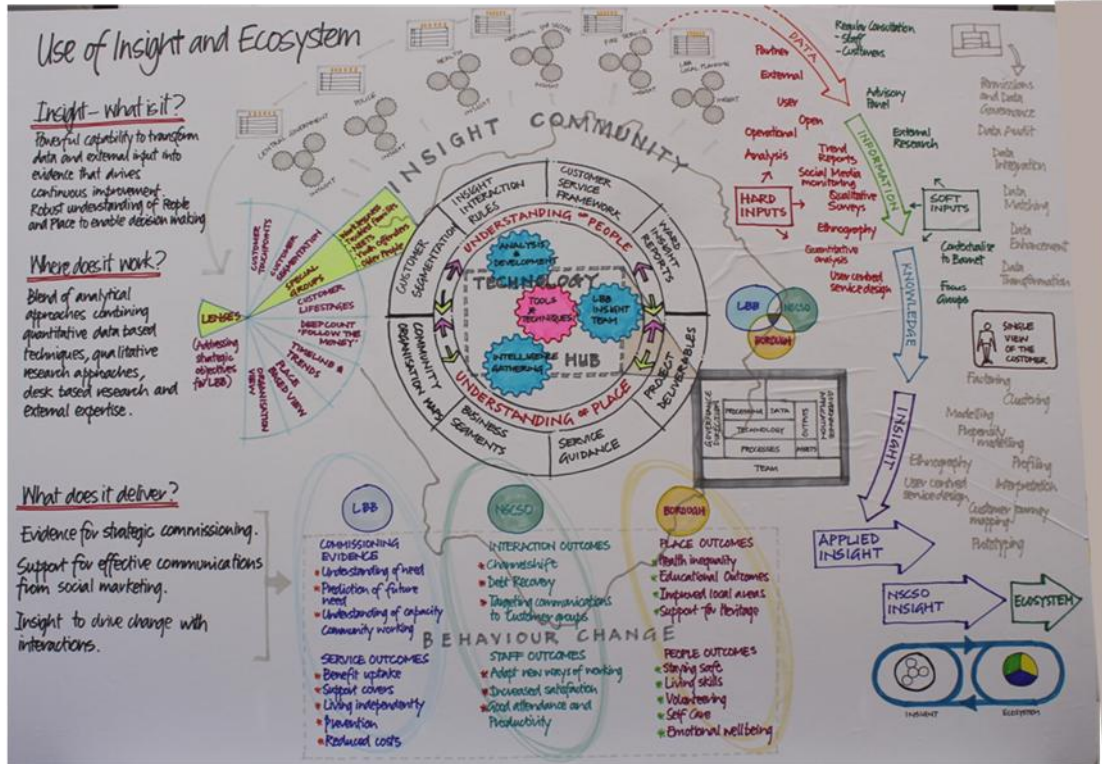 Use of Insight and Ecosystem
Insight – what is it?
Powerful capability to transform
data and external input into
evidence that drives
continuous improvement.
Robust understanding of People
and Place to enable decision making
Where does it work?
Blend of analytical
approaches combining
quantitative data based
techniques, qualitative
research approaches,
desk based research and
external expertise.
What does it deliver?
Evidence for strategic commissioning.
Support for effective communications
from social marketing.
Insight to drive change with
interactions.
CENTRAL GOVERNMENT
INSIGHT
POLICE
INSIGHT
HEALTH
INSIGHT
INSIGHT
FIRE SERVICE
INSIGHT
LBB
LOCAL PLANNING
INSIGHT
INSIGHT COMMUNITY
LENSES
(Addressing
strategic
objectives
for LBB)
CUSTOMER
TOUCHPOINTS
CUSTOMER
SEGMENTATION
SPECIAL
GROUPS
Worklessness
Troubled families
NEETS
Violent offenders
Older People
CUSTOMER
LIFESTAGES
DEEP COUNT
"FOLLOW THE
MONEY"
TIMELINE &
TRENDS
PLACE
BASED VIEW
ORGANISATION
VIEW
INSIGHT
INTERACTION
RULES
CUSTOMER
SERVICE
FRAMEWORK
WARD
INSIGHT
REPORTS
PROJECT
DELIVERABLES
SERVICE
GUIDANCE
BUSINESS
SEGMENTS
COMMUNITY
ORGANISATION MAPS
CUSTOMER
SEGMENTATION
UNDERSTANDING OF PEOPLE
UNDERSTANDING OF PLACE
TECHNOLOGY
HUB
ANALYSIS
&
DEVELOPMENT
TOOLS
&
TECHNIQUES
LBB
INSIGHT
TEAM
INTELLIGENCE
GATHERING
LBB
NSCSO
BOROUGH
GOVERNANCE
DIRECTION
PROCESSING
DATA
TECHNOLOGY
PROCESSES
OUTPUTS
ASSETS
APPLICATION
TEAM
DATA
Partner
External
User
Open
Operational
Analysis
Trend
Reports
Social Media
monitoring
Qualitative
Surveys
Ethnography
Quantitative
analysis
User centred
service design
HARD
INPUTS
Regular Consultation
- Staff
- Customers
Advisory
Panel
External
Research
INFORMATION
SOFT
INPUTS
Contextualise
to Barnet
Focus
Groups
KNOWLEDGE
Permissions
and Data
Governance
Data Audit
Data
Integration
Data
Matching
Data
Enhancement
Data
Transformation
SINGLE
VIEW
OF THE
CUSTOMER
Factoring
Clustering
Modelling
Propensity
modelling
Ethnography
User centred
service design
Profiling
Interpretation
Customer journey
mapping
Prototyping
INSIGHT
APPLIED
INSIGHT
NSCSO
INSIGHT
ECOSYSTEM
INSIGHT
ECOSYSTEM
LBB
COMMISSIONING
EVIDENCE
Understanding of need
Prediction of future
need
Understanding of capacity
Community working
SERVICE OUTCOMES
Benefit uptake
Support covers
Living independently
Prevention
Reduced costs
NSCSO
INTERACTION OUTCOMES
Channelshift
Debt Recovery
Targeting communications
to Customer groups
STAFF OUTCOMES
Adopt new ways of working
Increased satisfaction
Good attendance and
Productivity
BOROUGH
PLACE OUTCOMES
Health inequality
Educational Outcomes
Improved local areas
Support for Heritage
PEOPLE OUTCOMES
Staying safe
Living skills
Volunteering
Self Care
Emotional wellbeing
BEHAVIOUR CHANGE